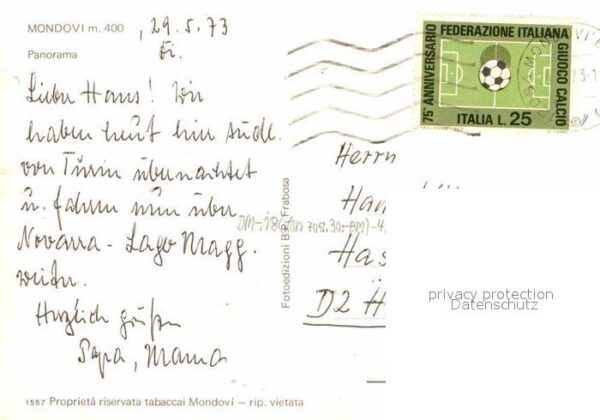 MONDOVI m. 400
Panorama
, 29.5.73
Di.
Lieber Hans! Wir
haben heut hier südl.
von Turin übernachtet
u. fahren nun über
Novarra - Lago Magg.
weiter.
Herzlich grüßen
Papa, Mama
1557 Proprietà riservata tabaccai Mondovì — rip. vietata
Fotoedizioni Frabosa
75° ANNIVERSARIO
FEDERAZIONE ITALIANA
GIUOCO CALCIO
ITALIA L. 25
Herrn
Han
Has
D2 H
privacy protection
Datenschutz